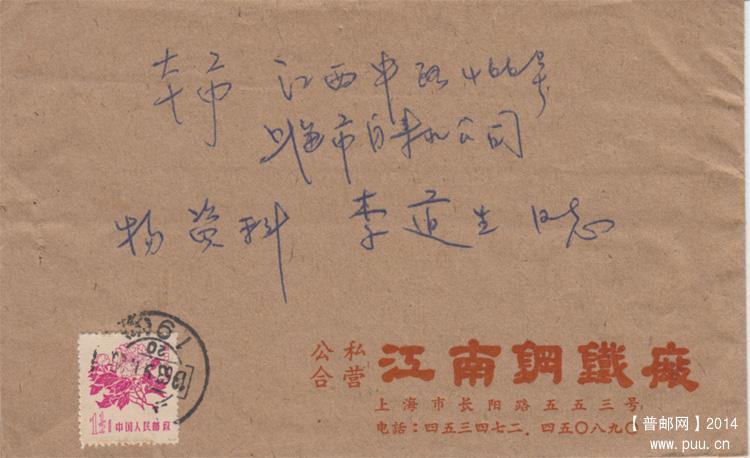 本市 江西中路466号
上海市自来水公司
物资科 李道生 同志
公私合营 江南鋼鐵廠
上海市长阳路五五三号
电話：四五三四七二．四五〇八九〇
1½ 中国人民邮政
【普邮网】2014
www.puu.cn